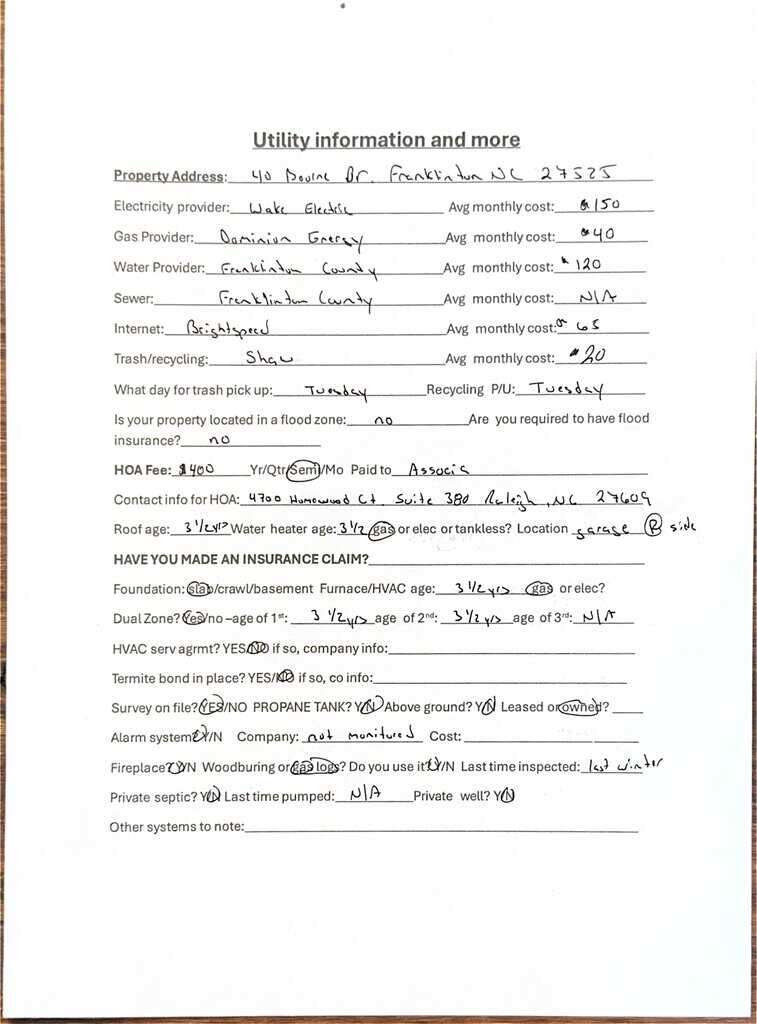 Utility information and more
Property Address: 40 Bourne Dr. Franklinton NC 27525
Electricity provider: Wake Electric Avg monthly cost: $150
Gas Provider: Dominion Energy Avg monthly cost: $40
Water Provider: Franklinton County Avg monthly cost: $120
Sewer: Franklinton County Avg monthly cost: N/A
Internet: Brightspeed Avg monthly cost: $65
Trash/recycling: Shaw Avg monthly cost: $20
What day for trash pick up: Tuesday Recycling P/U: Tuesday
Is your property located in a flood zone: no Are you required to have flood
insurance? no
HOA Fee: $400 Yr/Qtr/Semi/Mo Paid to Associa
Contact info for HOA: 4700 Homewood Ct. Suite 380 Raleigh, NC 27609
Roof age: 3 1/2 yrs Water heater age: 3 1/2 gas or elec or tankless? Location garage R side
HAVE YOU MADE AN INSURANCE CLAIM?
Foundation: slab/crawl/basement Furnace/HVAC age: 3 1/2 yrs gas or elec?
Dual Zone? Yes/no –age of 1st: 3 1/2 yrs age of 2nd: 3 1/2 yrs age of 3rd: N/A
HVAC serv agrmt? YES/NO if so, company info:
Termite bond in place? YES/NO if so, co info:
Survey on file? YES/NO PROPANE TANK? Y/N Above ground? Y/N Leased or owned?
Alarm system? Y/N Company: not monitured Cost:
Fireplace? Y/N Woodburing or gas logs? Do you use it? Y/N Last time inspected: last winter
Private septic? Y/N Last time pumped: N/A Private well? Y/N
Other systems to note: